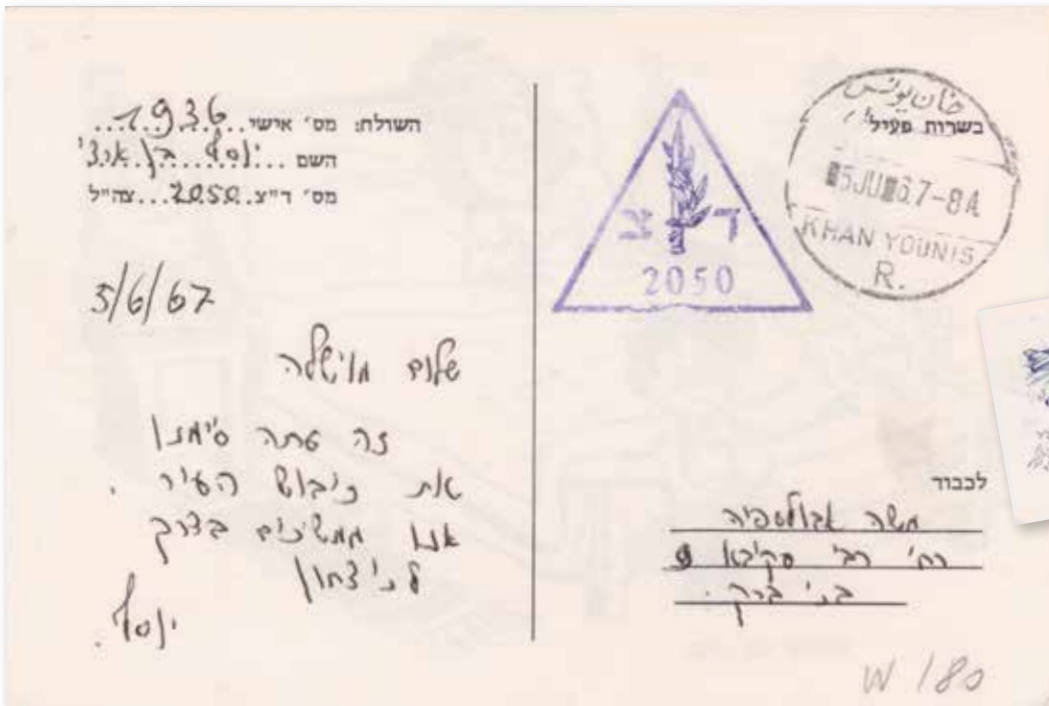 השולח: מס׳ אישי...1936...
השם...יוסף בן ארצי
מס׳ ד״צ..2050...צה״ל
5/6/67
שלום מוישלה
זה עתה סיימנו
את כיבוש העיר.
אנו ממשיכים בדרך
לניצחון
יוסף.
ד צ
2050
خان يونس
בשרות פעיל
5JU67-8A
KHAN YOUNIS
R.
לכבוד
משה אבולעפיה
רח׳ רבי עקיבא 9
בני ברק.
W 180